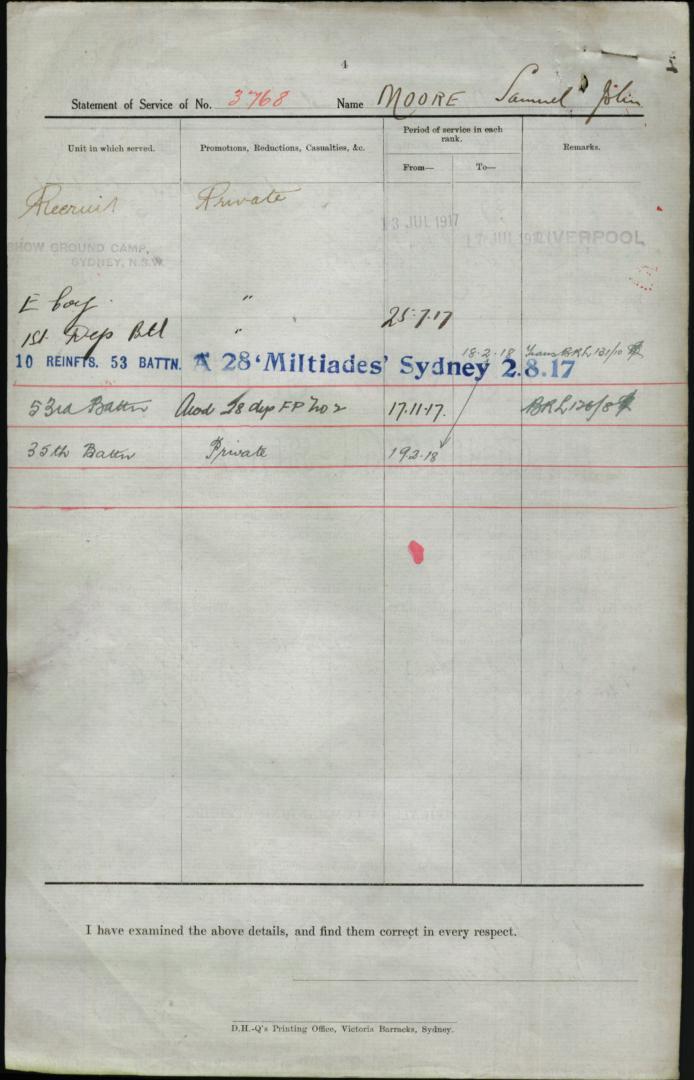 4
Statement of Service of No. 3768 Name MOORE Samuel John
Unit in which served. Promotions, Reductions, Casualties, &c. Period of service in each rank. From— To— Remarks.
Recruit Private 13 JUL 1917 17 JUL 19 LIVERPOOL
SHOW GROUND CAMP,
SYDNEY, N.S.W.
E Coy " 25.7.17
1st Dep Btl "
18.2.18 Trans BRL 131/10
10 REINFTS. 53 BATTN. A 28 'Miltiades' Sydney 2.8.17
53rd Battn Awd 28 dys FP No 2 17.11.17. BRL 126/8
35th Battn Private 19.2.18
I have examined the above details, and find them correct in every respect.
D.H.-Q's Printing Office, Victoria Barracks, Sydney.